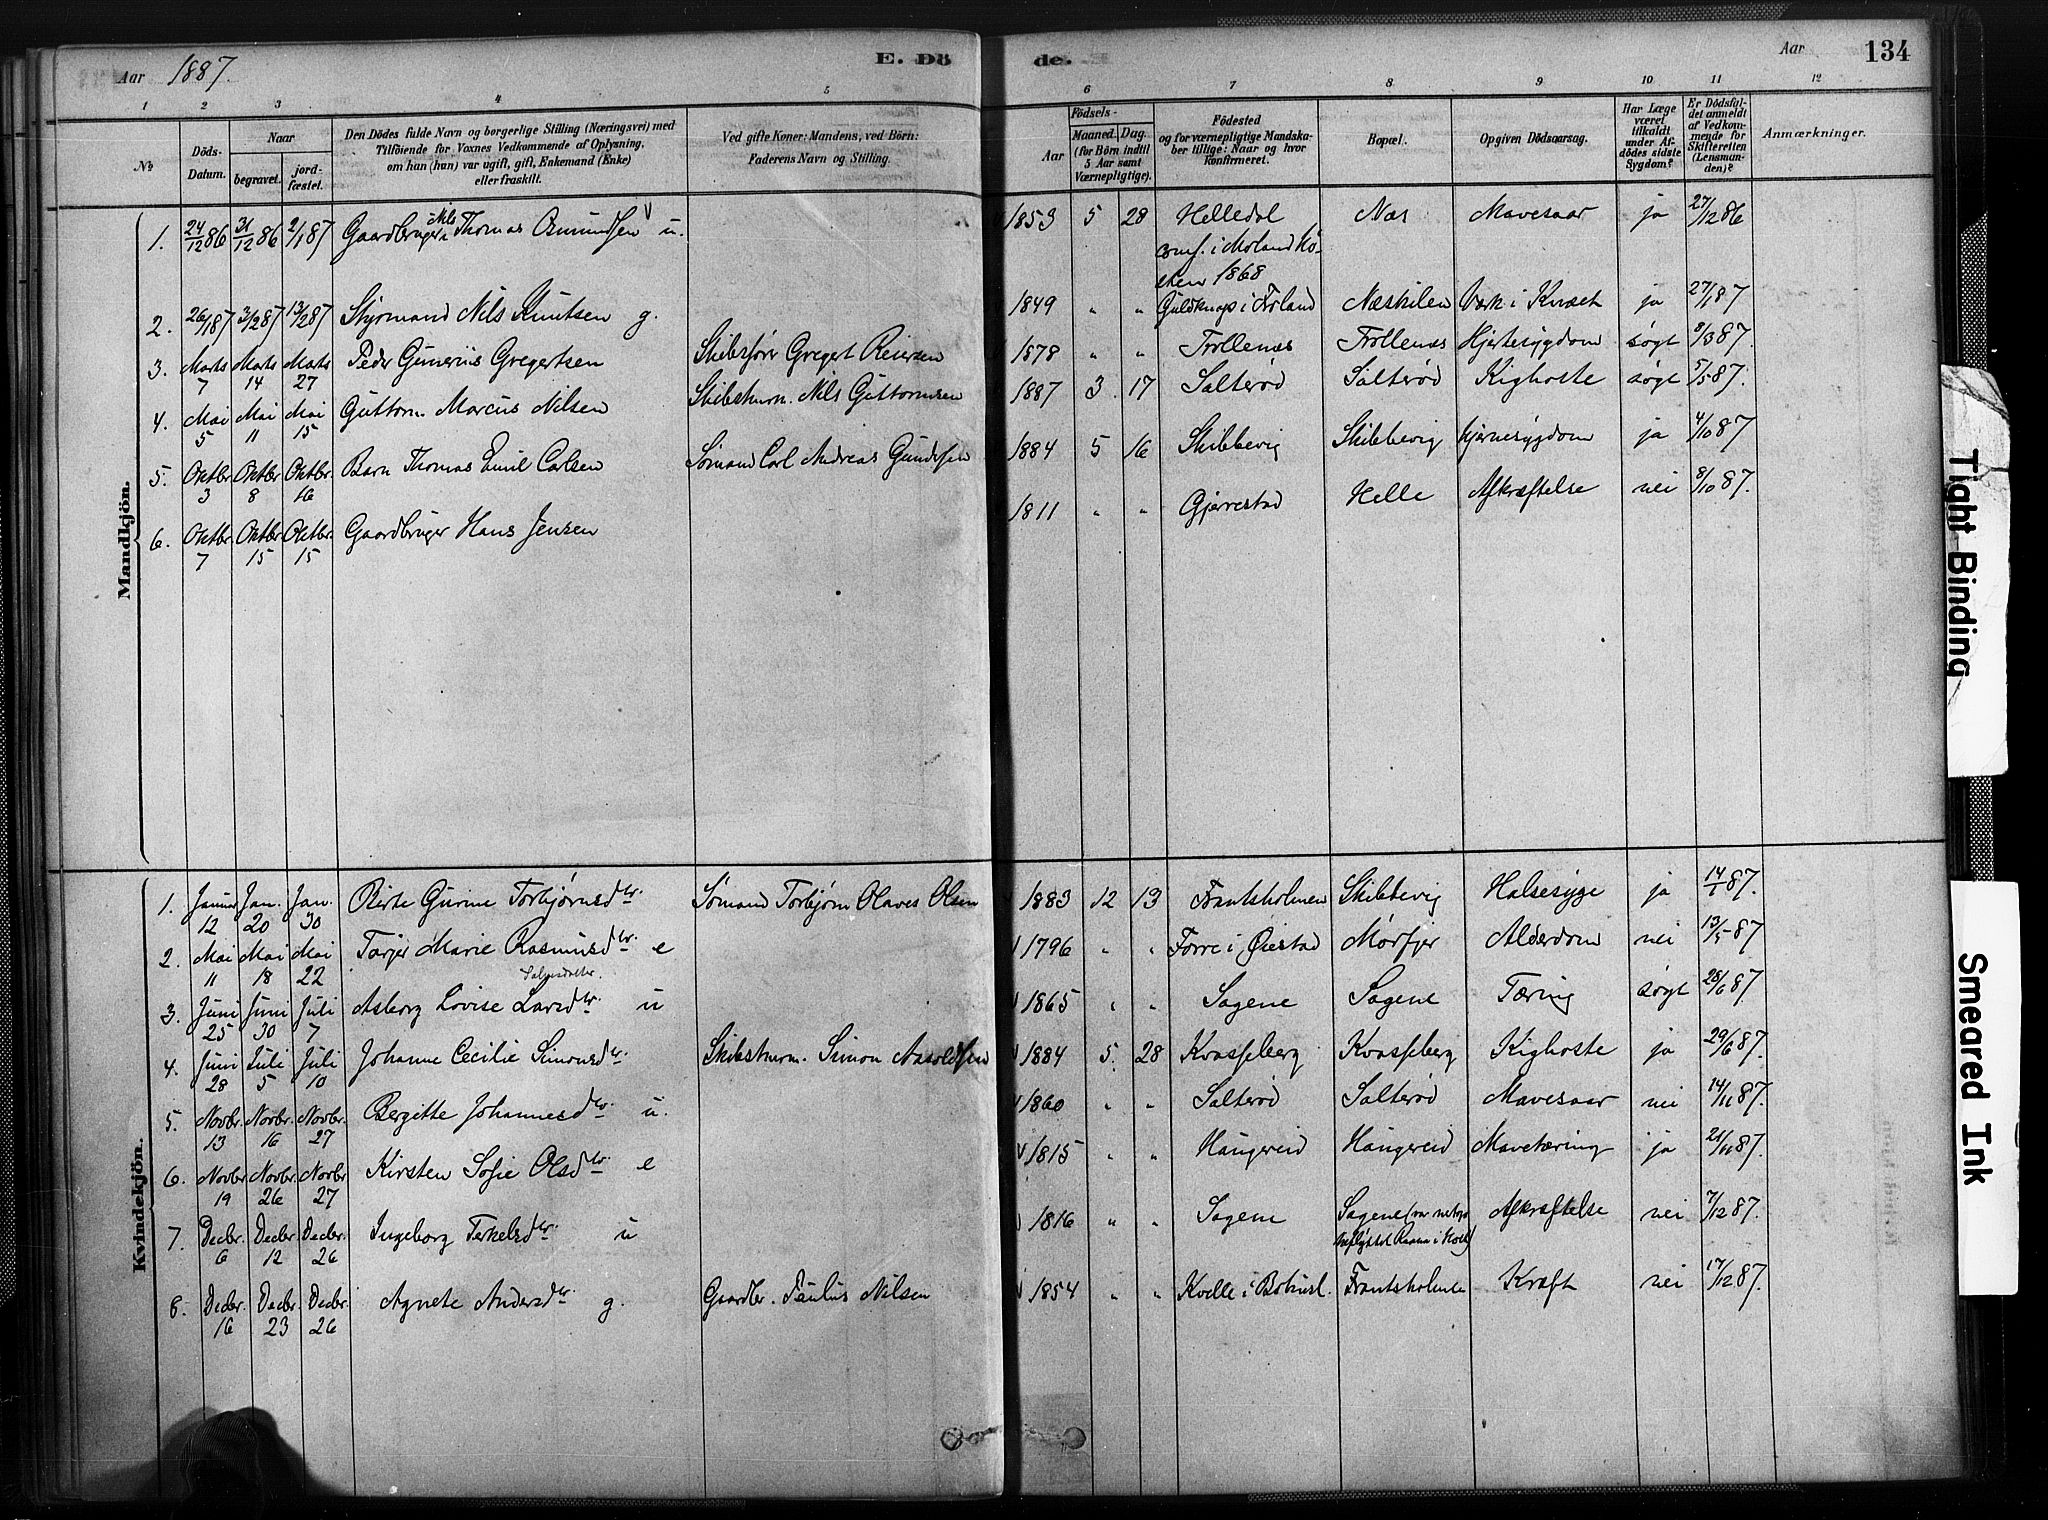 Aar 1887.
E. Dö
de.
Aar
134
1 2 3 4 5
6 7 8 9 10 11 12
No
Döds-
Datum.
Naar
begravet.
jord-
fæstet.
Den Dödes fulde Navn og borgerlige Stilling (Næringsvei) med
Tilföiende for Voxnes Vedkommende af Oplysning,
om han (hun) var ugift, gift, Enkemand (Enke)
eller fraskilt.
Ved gifte Koner: Mandens, ved Börn:
Faderens Navn og Stilling.
Födsels-
Aar
Maaned. Dag.
(for Börn indtil
5 Aar samt
Værnepligtige).
Födested
og for værnepligtige Mandska-
ber tillige: Naar og hvor
konfirmeret.
Bopæl.
Opgiven Dödsaarsag.
Har Læge
været
tilkaldt
under Af-
dödes sidste
Sygdom?
Er Dödsfal-
det anmeldt
af Vedkom-
mende for
Skifteretten
(Lensman-
den)?
Anmærkninger.
Mandkjön.
1. 24/12 86 31/12 86 2/1 87 Gaardbruger Nils Thomas Osmundsen u. 1853 5 28 Helledal Næs Mavesaar ja 27/12 86
conf. i Moland Kir-
ken 1868
2. 26/1 87 3/2 87 13/2 87 Styrmand Nils Knutsen g. 1849 " " Guldknap i Froland Næskilen Værk i Knæet ja 27/1 87
3. Marts 7 Marts 14 Marts 27 Peder Gunerius Gregertsen Skibsfører Gregert Reiersen 1878 " " Trollenæs Trollenæs Hjertesygdom søgt 8/3 87.
4. Mai 5 Mai 11 Mai 15 Guttorm Marcus Nilsen Skibstmrm. Nils Guttormsen 1887 3 17 Salterød Salterød Kighoste søgt 5/5 87.
5. Oktbr. 3 Oktbr. 8 Oktbr. 16 Barn Thomas Emil Carlsen Sømand Carl Andreas Gundersen 1884 5 16 Skibbevig Skibbevig Hjernesygdom ja 4/10 87
6. Oktbr. 7 Oktbr. 15 Oktbr. 15 Gaardbruger Hans Jensen 1811 " " Gjerrestad Helle Afkræftelse nei 8/10 87.
Kvindekjön.
1. Januar 12 Jan. 20 Jan. 30 Birte Gurine Torbjørnsdtr. Sømand Torbjørn Olaves Olsen 1883 12 13 Frantsholmen Skibbevig Halsesyge ja 14/1 87.
2. Mai 11 Mai 18 Mai 22 Tarjer Marie Rasmusdtr. e 1796 " " Forre i Øiestad Mørfjer Alderdom nei 13/5 87
3. Juni 25 Juni 30 Juli 7 Asborg Lovise Larsdtr. u 1865 " " Sagene Sagene Tæring søgt 28/6 87
4. Juni 28 Juli 5 Juli 10 Johanne Cecilie Simonsdtr. Skibstmrm. Simon Aasoldsen 1884 5. 28 Kvasseberg Kvasseberg Kighoste ja 29/6 87.
5. Novbr. 13 Novbr. 16 Novbr. 27 Bergitte Johannesdtr. u. 1860 " " Salterød Salterød Mavesaar nei 14/11 87.
6. Novbr. 19 Novbr. 26 Novbr. 27 Kirsten Sofie Olsdtr. e 1815 " " Haugereid Haugereid Mavetæring ja 21/11 87.
7. Decbr. 6 Decbr. 12 Decbr. 26 Ingeborg Terkelsdtr. u 1816 " " Sagene Sagene Afkræftelse nei 7/12 87.
8. Decbr. 16 Decbr. 23 Decbr. 26 Agnete Andersdtr. g. Gaardbr. Paulus Nilsen 1854 " " Kville i Bohusl. Frantsholmen Kræft nei 17/12 87.
Tight Binding
Smeared Ink